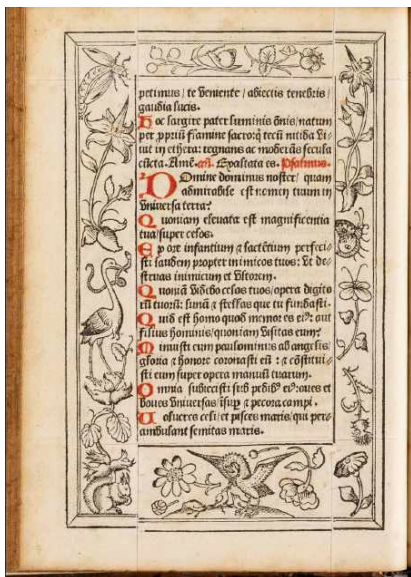 petimus / te veniente / abiectis tenebris /
gaudia lucis.
Hoc largire pater luminis om̄is / natum
per ꝓpriū flamine sacro: q̄ tecū nitida vi-
uit in ethera: regnans ac moderās secula
cūcta. Amē. an̄. Exaltata es. Psalmus.
Domine dominus noster / quam
admirabile est nomen tuum in
vniuersa terra?
Quoniam eleuata est magnificentia
tua / super celos.
Ex ore infantium ⁊ lactētium perfeci-
sti laudem propter inimicos tuos: vt de-
struas inimicum et vltorem.
Quoniā videbo celos tuos / opera digito
rū tuorū: lunā ⁊ stellas que tu fundasti.
Quid est homo quod memor es eiꝰ: aut
filius hominis / quoniam visitas eum?
Minuisti eum paulominus ab angelis /
gloria ⁊ honore coronasti eū: ⁊ cōstitui-
sti eum super opera manuū tuarum.
Omnia subiecisti sub pedibꝰ eiꝰ: oues et
boues vniuersas / īsuꝑ ⁊ pecora campi.
Uolucres celi / et pisces maris / qui per-
ambulant semitas maris.